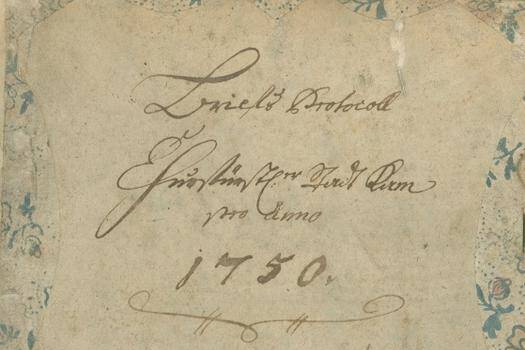 Briefs Protocoll
Churfürstl:er Stadt Kam
pro Anno
1750.